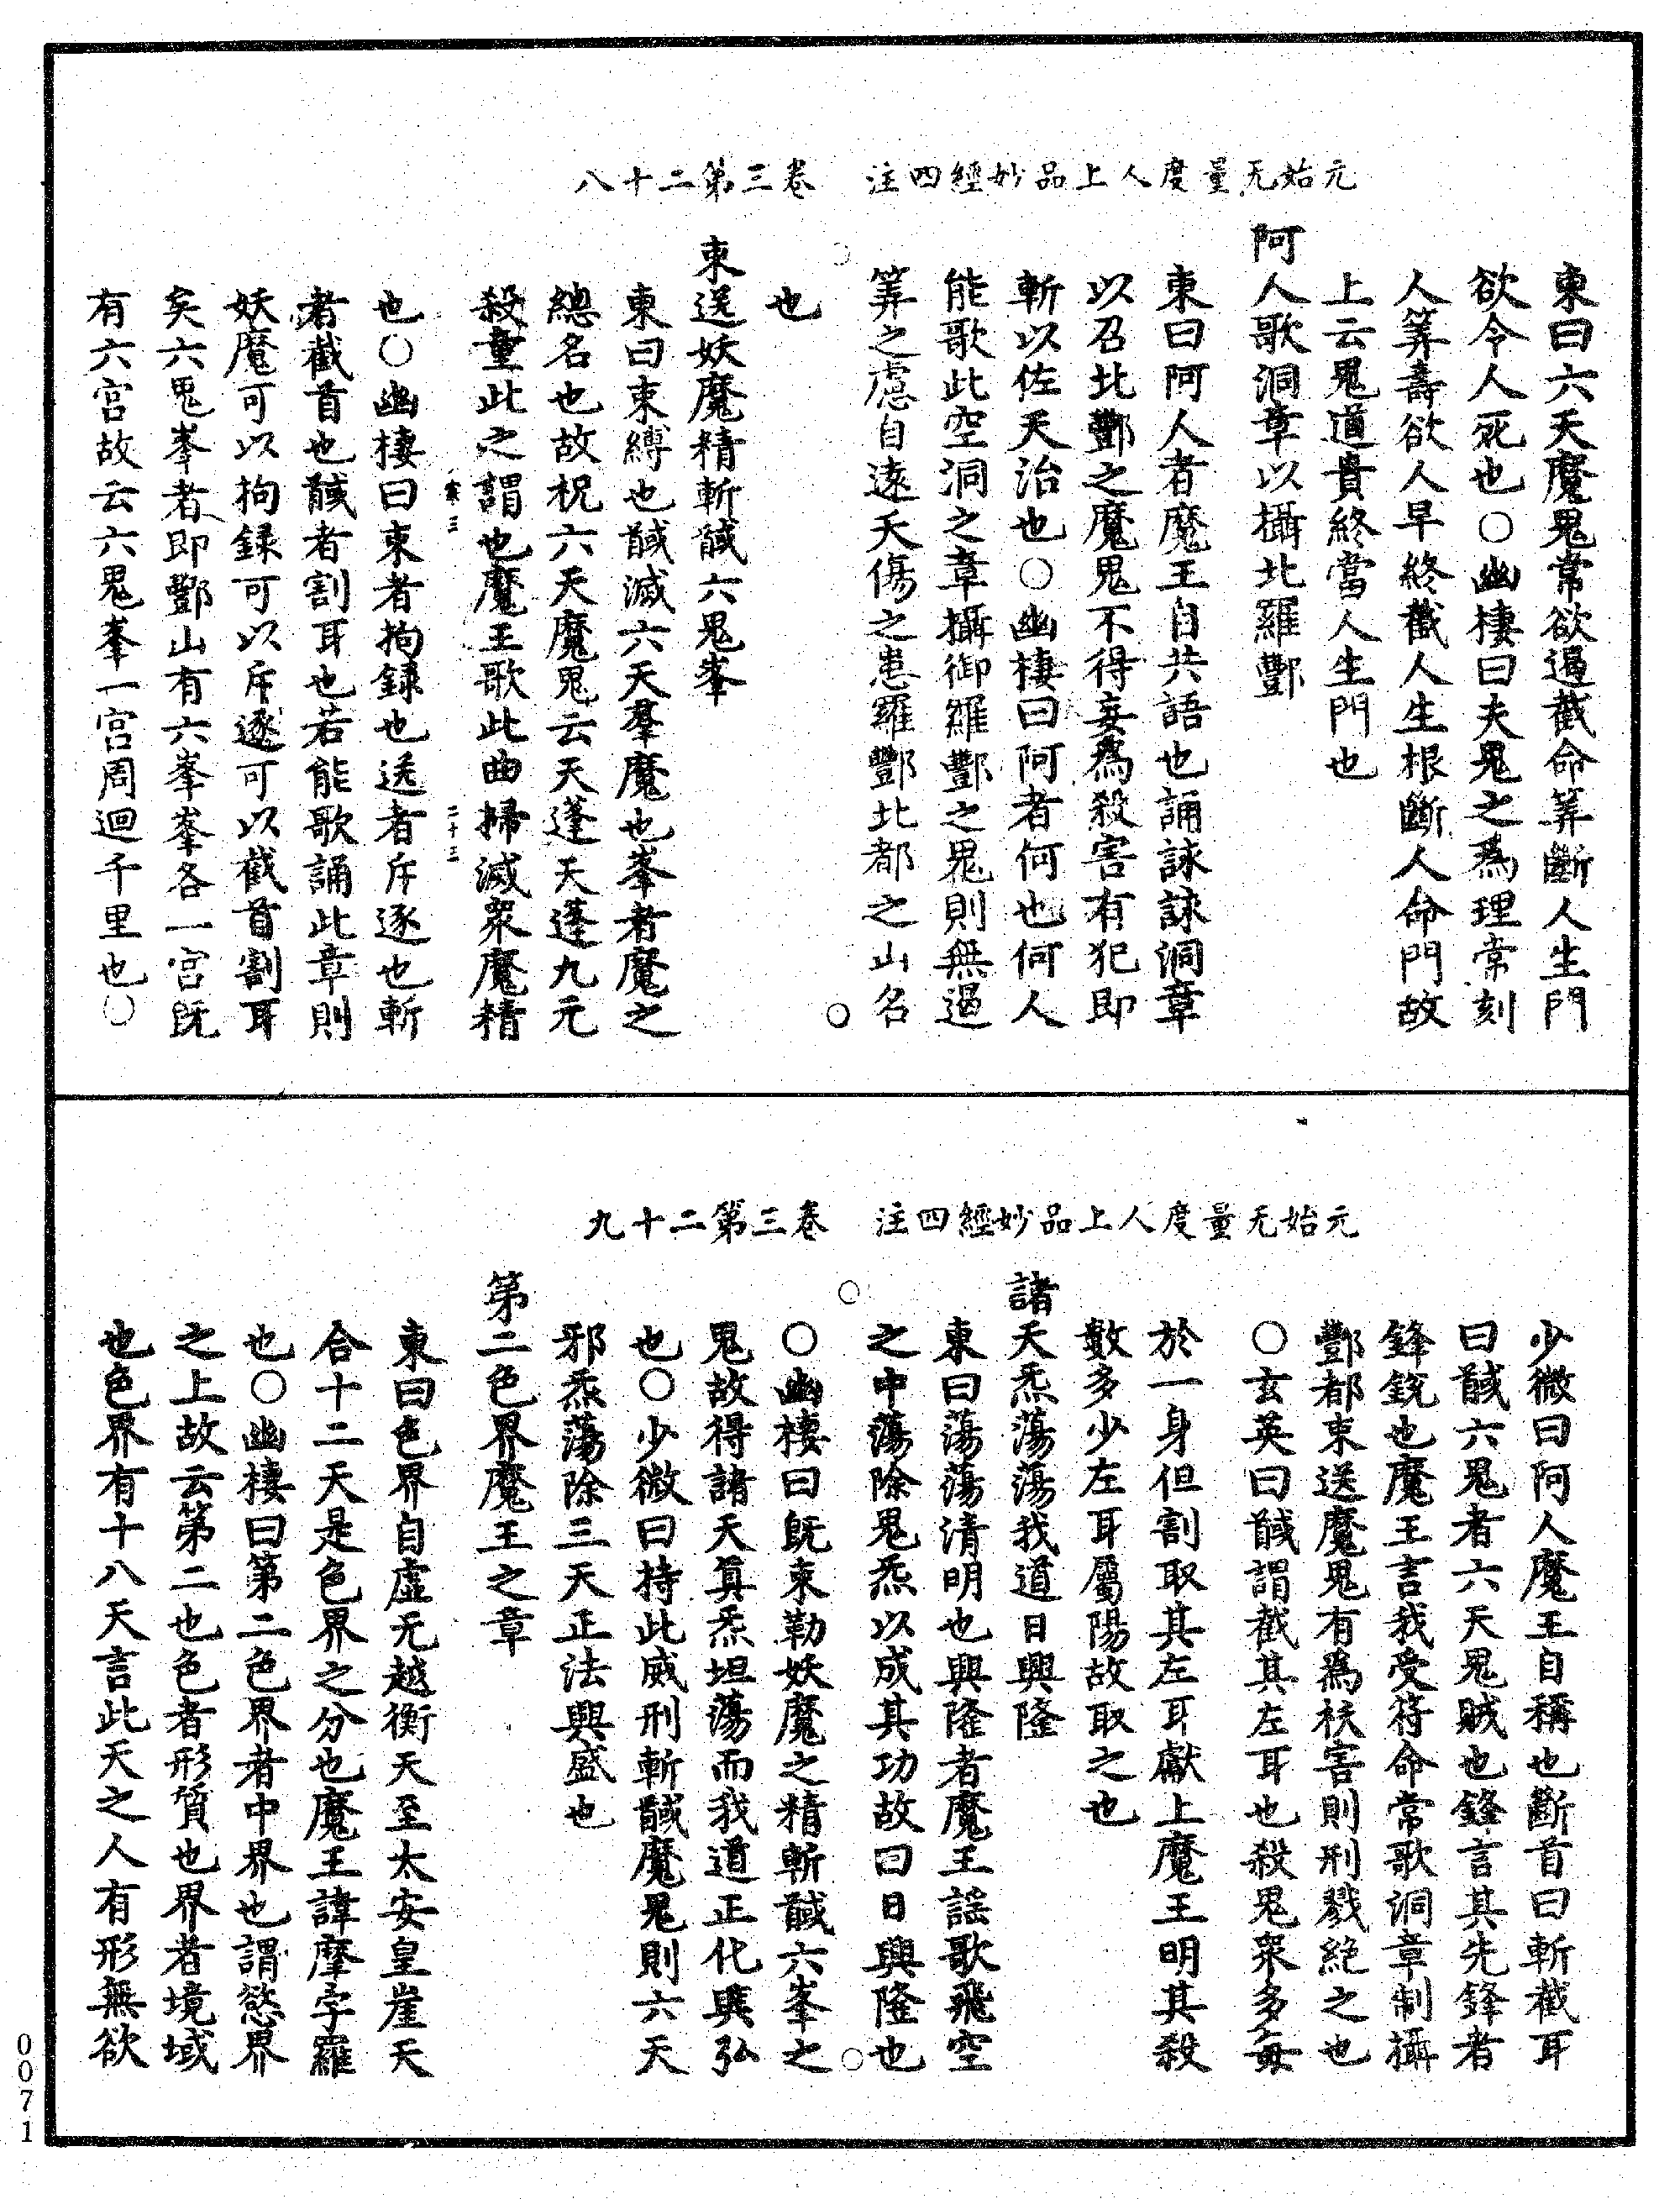 元始无量度人上品妙經四注　卷三第二十八
東曰六天魔鬼常欲遏截命筭斷人生門
欲令人死也○幽棲曰夫鬼之爲理常刻
人筭壽欲人早終截人生根斷人命門故
上云鬼道貴終當人生門也
阿人歌洞章以攝北羅酆
東曰阿人者魔王自共語也誦詠詠洞章
以召北酆之魔鬼不得妄爲殺害有犯即
斬以佐天治也○幽棲曰阿者何也何人
能歌此空洞之章攝御羅酆之鬼則無遏
筭之慮自遠夭傷之患羅酆北都之山名
也
束送妖魔精斬馘六鬼峯
東曰束縛也馘滅六天羣魔也峯者魔之
總名也故祝六天魔鬼云天蓬天蓬九元
殺童此之謂也魔王歌此曲掃滅衆魔精
也○幽棲曰束者拘録也送者斥逐也斬
者截首也馘者割耳也若能歌誦此章則
妖魔可以拘録可以斥逐可以截首割耳
矣六鬼峯者即酆山有六峯峯各一宮旣
有六宮故云六鬼峯一宮周迴千里也○
元始无量度人上品妙經四注　卷三第二十九
少微曰阿人魔王自稱也斷首曰斬截耳
曰馘六鬼者六天鬼賊也鋒言其先鋒者
鋒銳也魔王言我受符命常歌洞章制攝
酆都束送魔鬼有爲祅害則刑戮絶之也
○玄英曰馘謂截其左耳也殺鬼衆多每
於一身但割取其左耳獻上魔王明其殺
數多少左耳屬陽故取之也
諸天炁蕩蕩我道日興隆
東曰蕩蕩清明也興隆者魔王謡歌飛空
之中蕩除鬼炁以成其功故曰日興隆也
○幽棲曰旣束勒妖魔之精斬馘六峯之
鬼故得諸天眞炁坦蕩而我道正化興弘
也○少微曰持此威刑斬馘魔鬼則六天
邪炁蕩除三天正法興盛也
第二色界魔王之章
東曰色界自虛无越衡天至太安皇崖天
合十二天是色界之分也魔王諱摩字羅
也○幽棲曰第二色界者中界也謂慾界
之上故云第二也色者形質也界者境域
也色界有十八天言此天之人有形無欲
0071